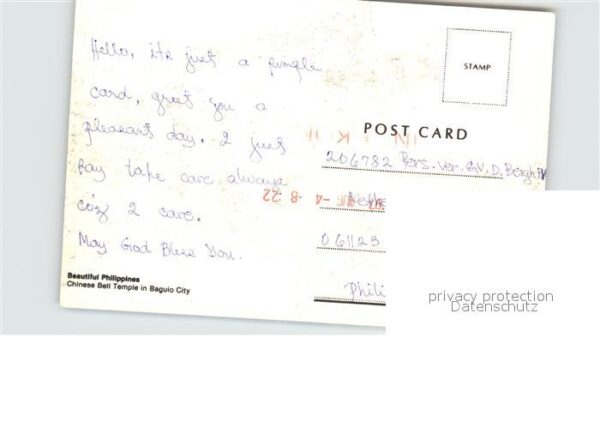 Hello, its just a simple
card, greet you a
pleasant day. I just
say take care always
coz I care.
May God Bless You.
Beautiful Philippines
Chinese Bell Temple in Baguio City
STAMP
POST CARD
206782 Pers. Ver. G.V.D. Bergh
061123
Phili
privacy protection
Datenschutz